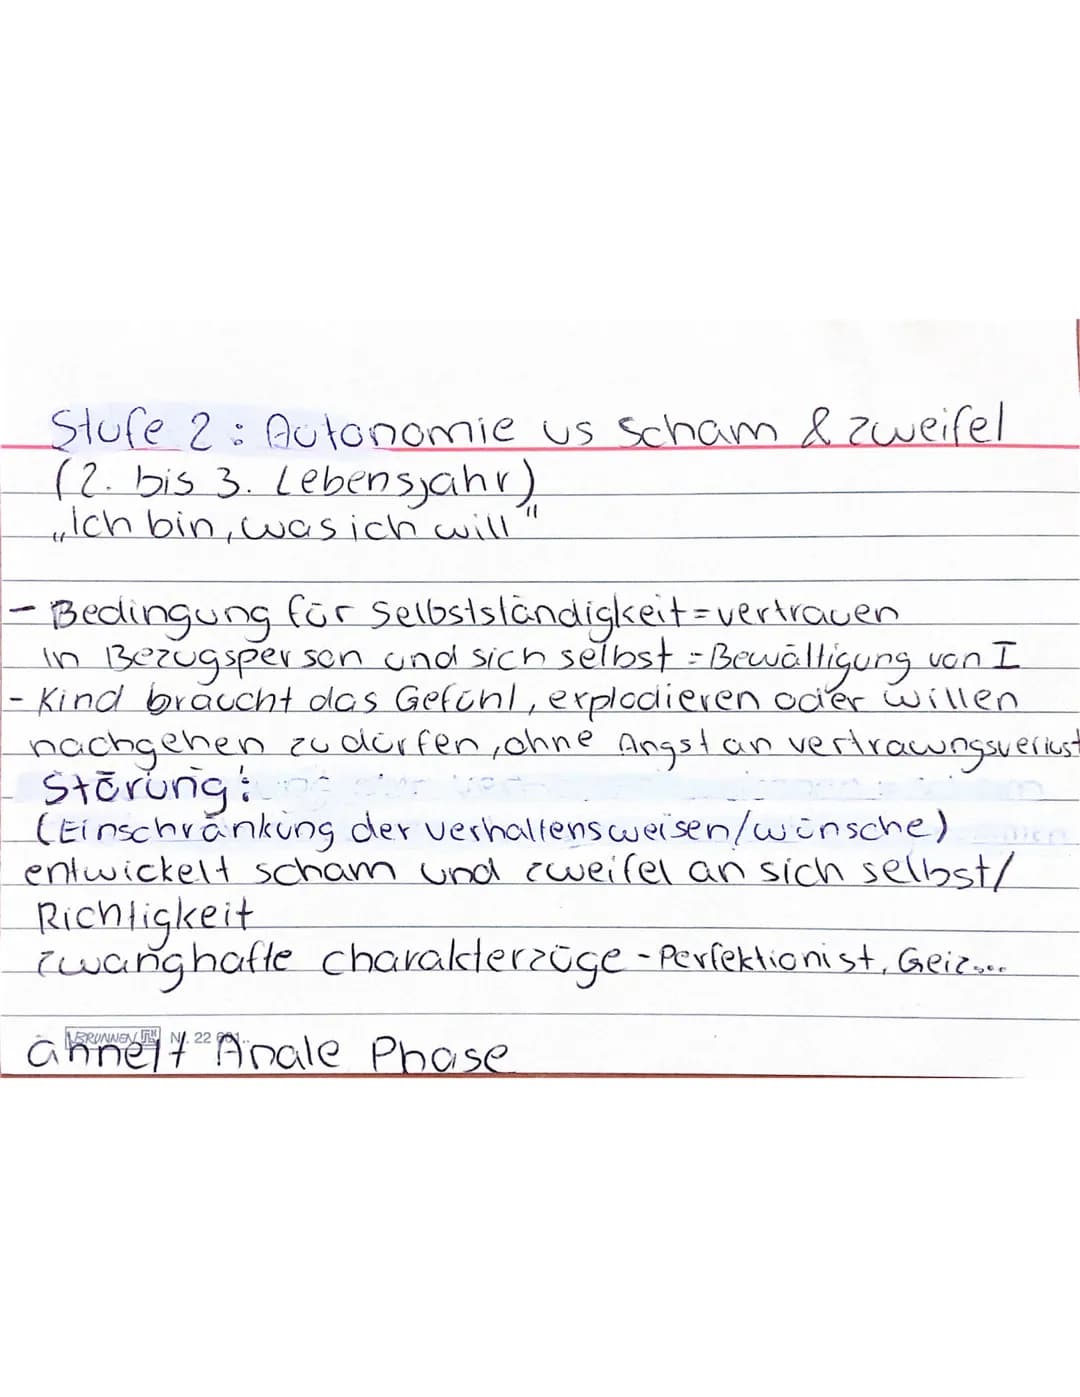 Stufe 2: Autonomie vs Scham & Zweifel
(2. bis 3. Lebensjahr)
„Ich bin, was ich will"
- Bedingung für Selbstständigkeit = vertrauen
in Bezugsperson und sich selbst = Bewältigung von I
- Kind braucht das Gefühl, explodieren oder willen
nachgehen zu dürfen, ohne Angst an vertrauungsverlust
Störung:
(Einschränkung der verhaltensweisen/wünsche)
entwickelt scham und zweifel an sich selbst/
Richtigkeit
zwanghafte charakterzüge - Perfektionist, Geiz...
BRUNNEN Nr. 22
ähnelt Anale Phase